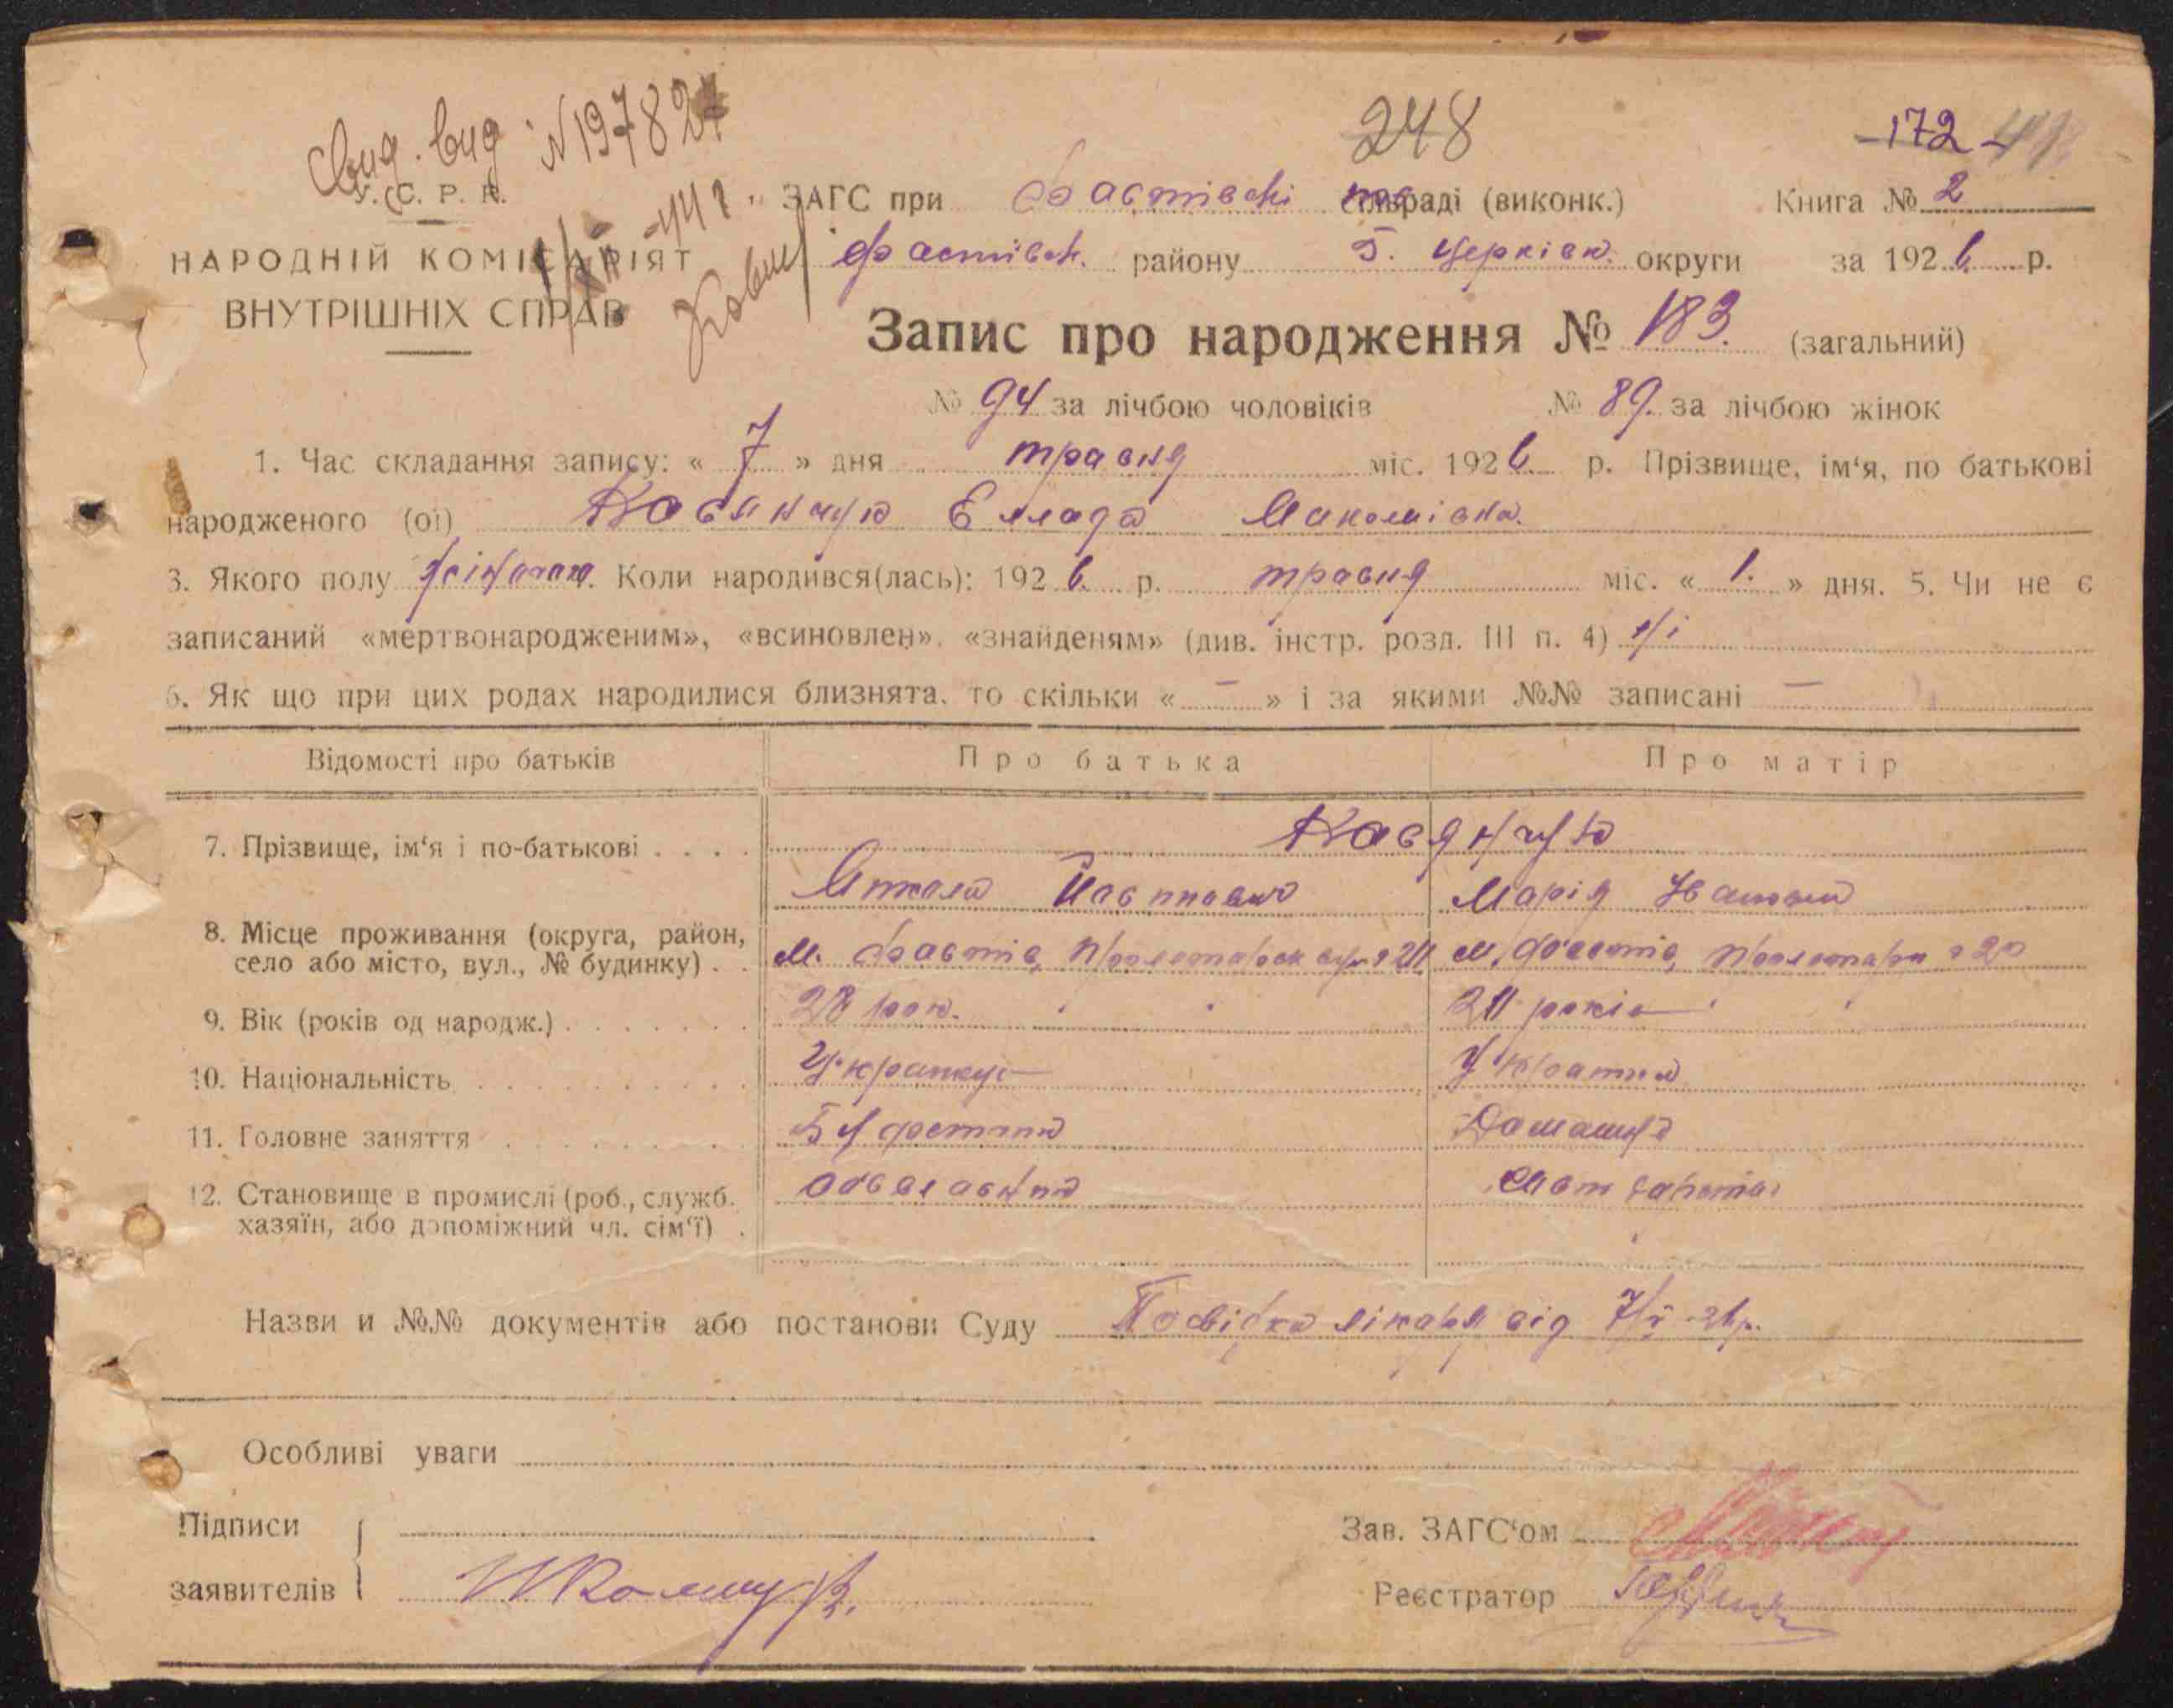 248
172
Свид. вид. N 197827
У. С. Р. Р.
ЗАГС при Фастівскі раді (виконк.) Книга № 2
НАРОДНІЙ КОМІСАРІЯТ
ВНУТРІШНІХ СПРАВ
Фастівск. району Б. Церківск. округи за 1926 р.
Запис про народження № 183. (загальний)
№ 94 за лічбою чоловіків № 89. за лічбою жінок
1. Час складання запису: « 7 » дня травня міс. 1926. р. Прізвище, ім‘я, по батькові
народженого (ої) Касянчук Еллада Миколаівна.
3. Якого полу жіночого. Коли народився(лась): 1926. р. травня міс. « 1. » дня. 5. Чи не є
записаний «мертвонародженим», «всиновлен», «знайденям» (див. інстр. розд. III п. 4) ні
6. Як що при цих родах народилися близнята, то скільки « — » і за якими №№ записані —
Відомості про батьків Про батька Про матір
7. Прізвище, ім‘я і по-батькові . . . . Касянчук
Микола Марія Івановна
8. Місце проживання (округа, район,
село або місто, вул., № будинку) . . м. Фастів, Пролетарск м. Фастів, Пролетарск 20
9. Вік (років од народж.) . . . . . . . 28 рок. років
10. Національність . . . . . . . . . . Українец Українка
11. Головне заняття . . . . . . . . . Домашня
12. Становище в промислі (роб., служб.
хазяїн, або допоміжний чл. сім‘ї) .
Назви и №№ документів або постанови Суду Посвідка лікаря від 7/V-26р.
Особливі уваги
Підписи
заявителів
Зав. ЗАГС‘ом
Реєстратор